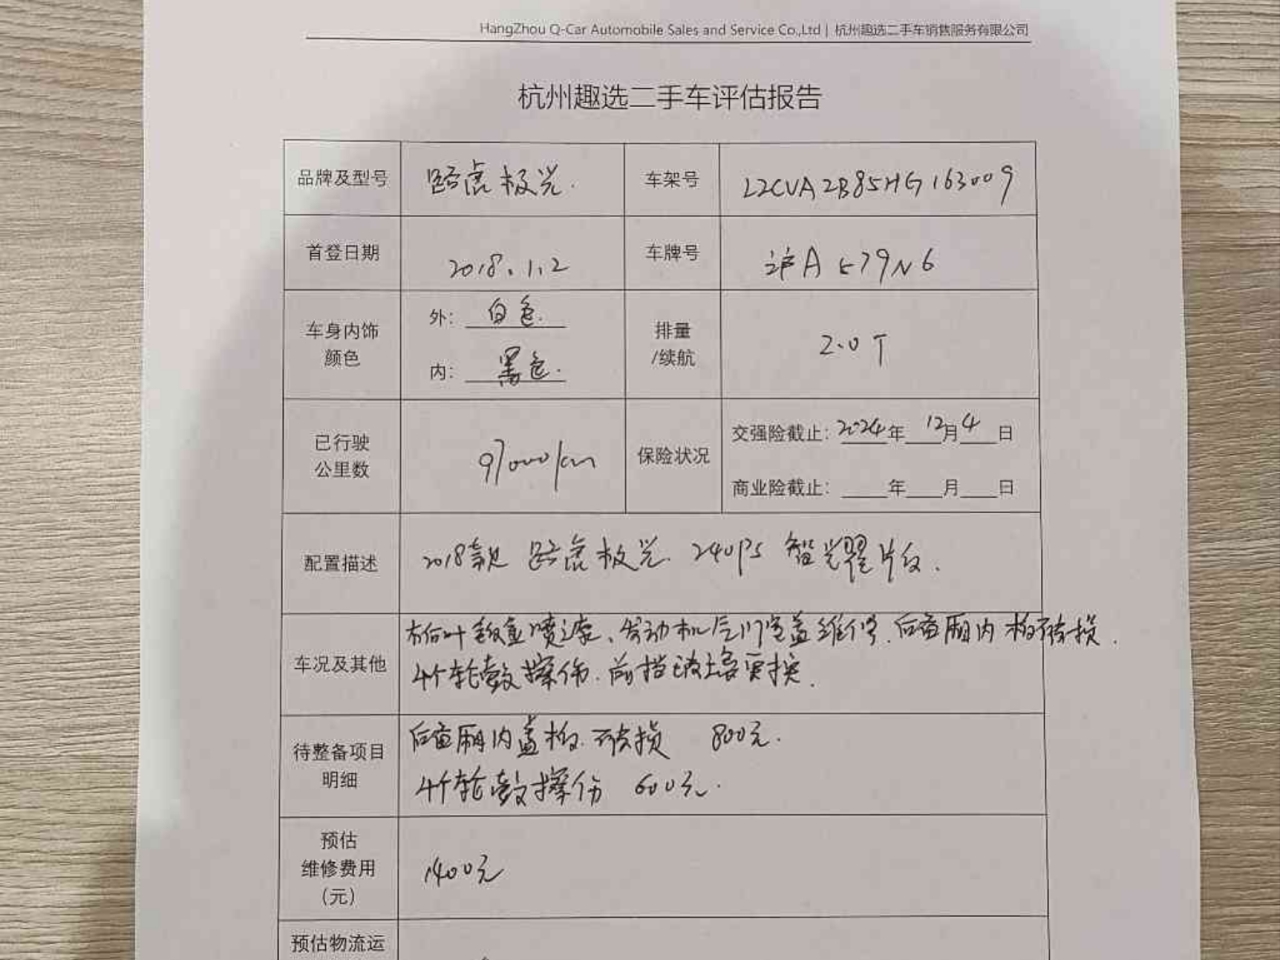 HangZhou Q-Car Automobile Sales and Service Co.,Ltd | 杭州趣选二手车销售服务有限公司
杭州趣选二手车评估报告
品牌及型号 路虎极光. 车架号 L2CVA2B85HG163009
首登日期 2018.1.2 车牌号 沪A 579N6
车身内饰
颜色
外: 白色.
内: 黑色.
排量
/续航
2.0T
已行驶
公里数
97000km
保险状况
交强险截止: 2024年 12月4日
商业险截止: 年 月 日
配置描述 2018款 路虎极光. 240PS 智耀版.
车况及其他
右后叶钣金喷漆、发动机气门室盖维修、后备厢内板破损.
4个轮毂擦伤. 前挡玻璃更换.
待整备项目
明细
后备厢内盖板 破损 800元.
4个轮毂擦伤 600元.
预估
维修费用
(元)
1400元
预估物流运